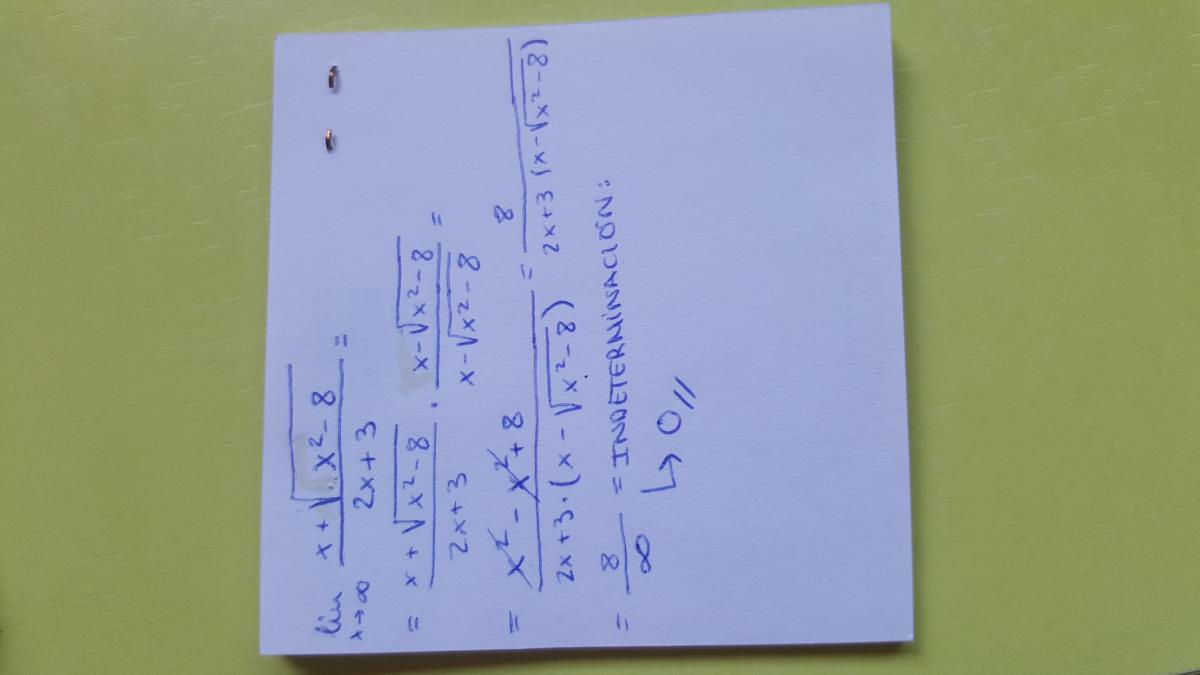 lim x→∞ (x + √(x² - 8)) / (2x + 3) =
= (x + √(x² - 8)) / (2x + 3) · (x - √(x² - 8)) / (x - √(x² - 8)) =
= (x² - x² + 8) / (2x + 3 · (x - √(x² - 8))) = 8 / (2x + 3 (x - √(x² - 8)))
= 8 / ∞ = INDETERMINACIÓN:
↳ 0 //